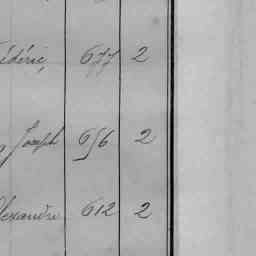 édéric, 677 2
Joseph 656 2
lexandre 612 2